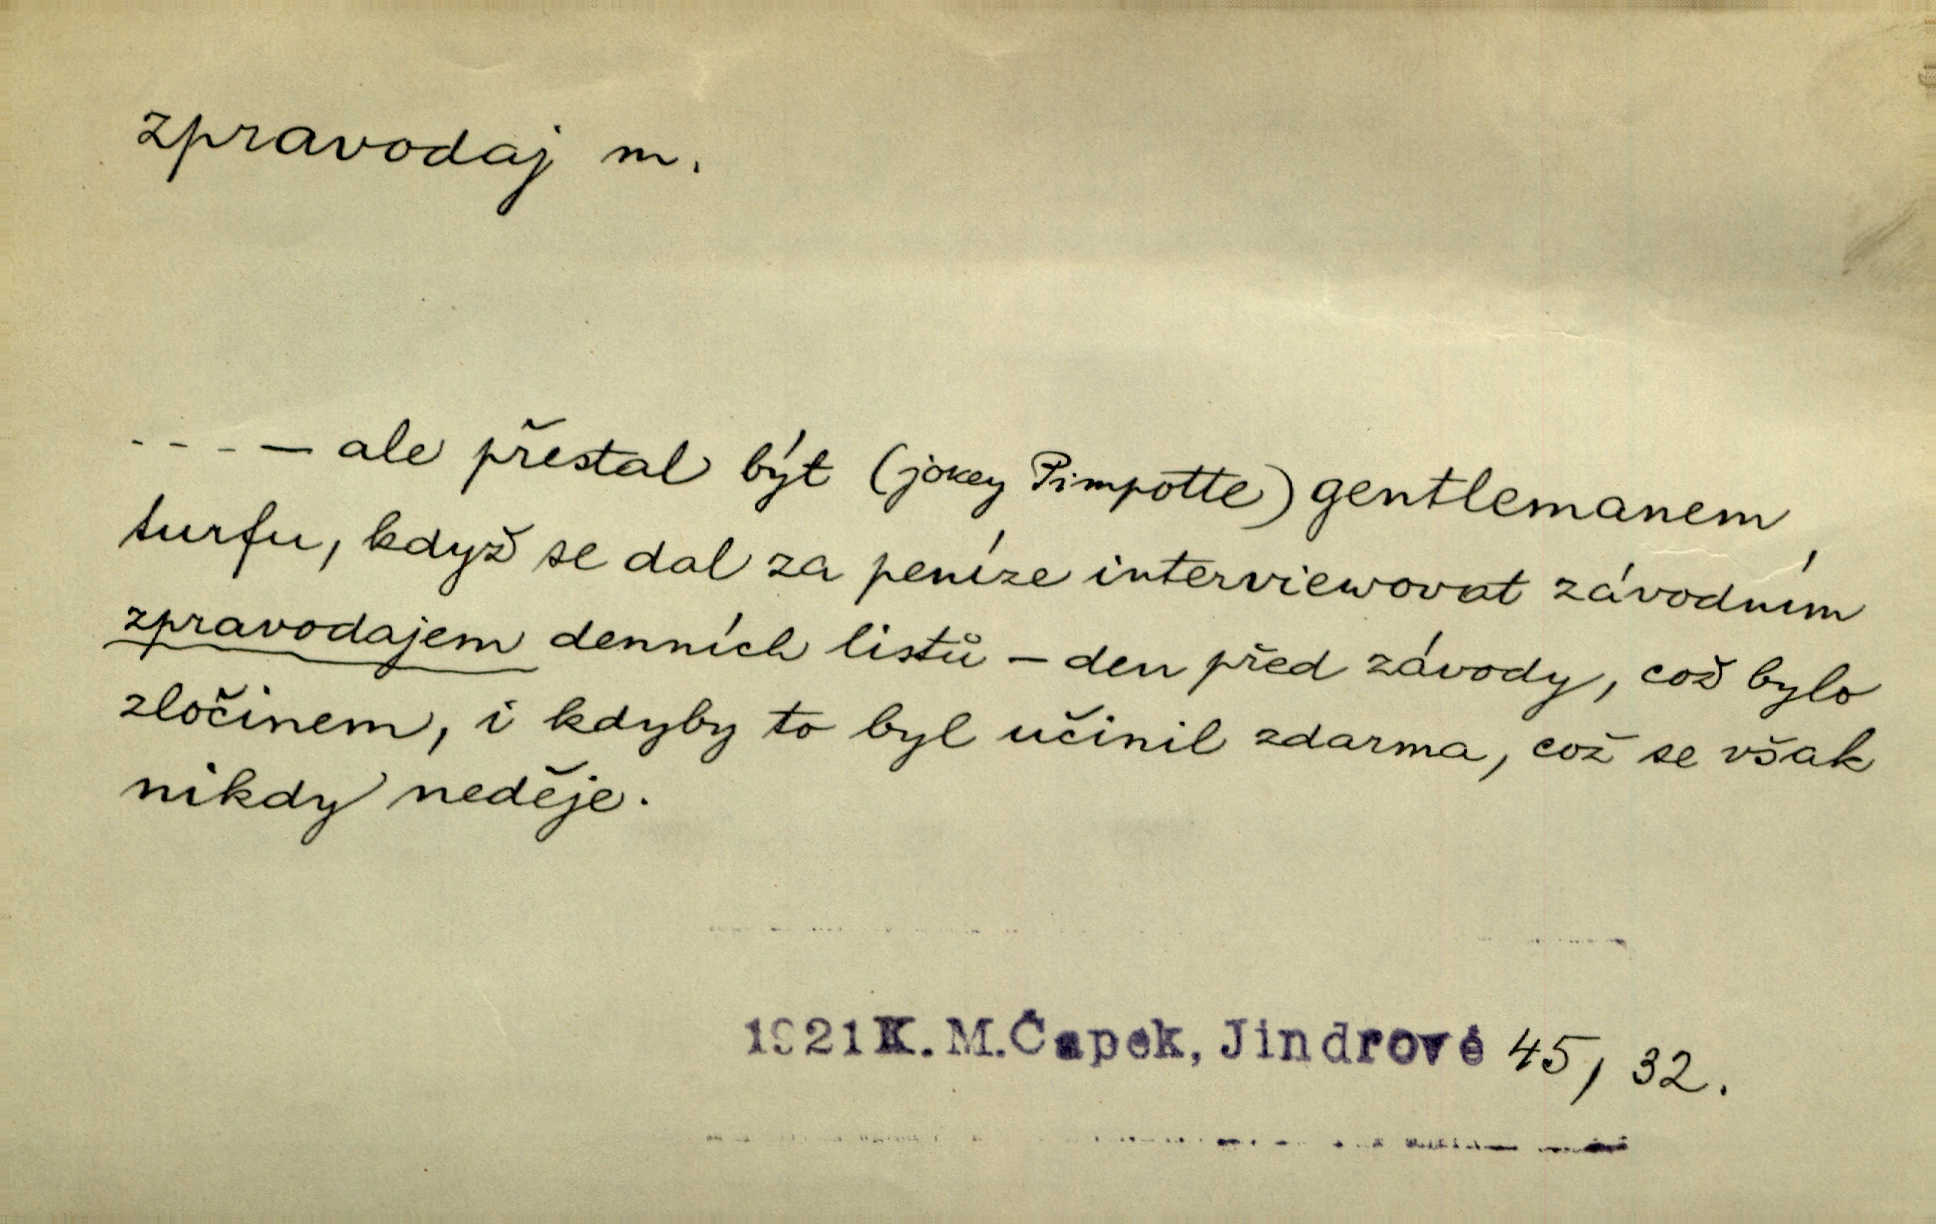 zpravodaj m.
- - - — ale přestal být (jokey Pimpotte) gentlemanem
turfu, když se dal za peníze interviewovat závodním
zpravodajem denních listů — den před závody, což bylo
zločinem, i kdyby to byl učinil zdarma, což se však
nikdy neděje.
1921 K. M. Čapek, Jindrové 45, 32.